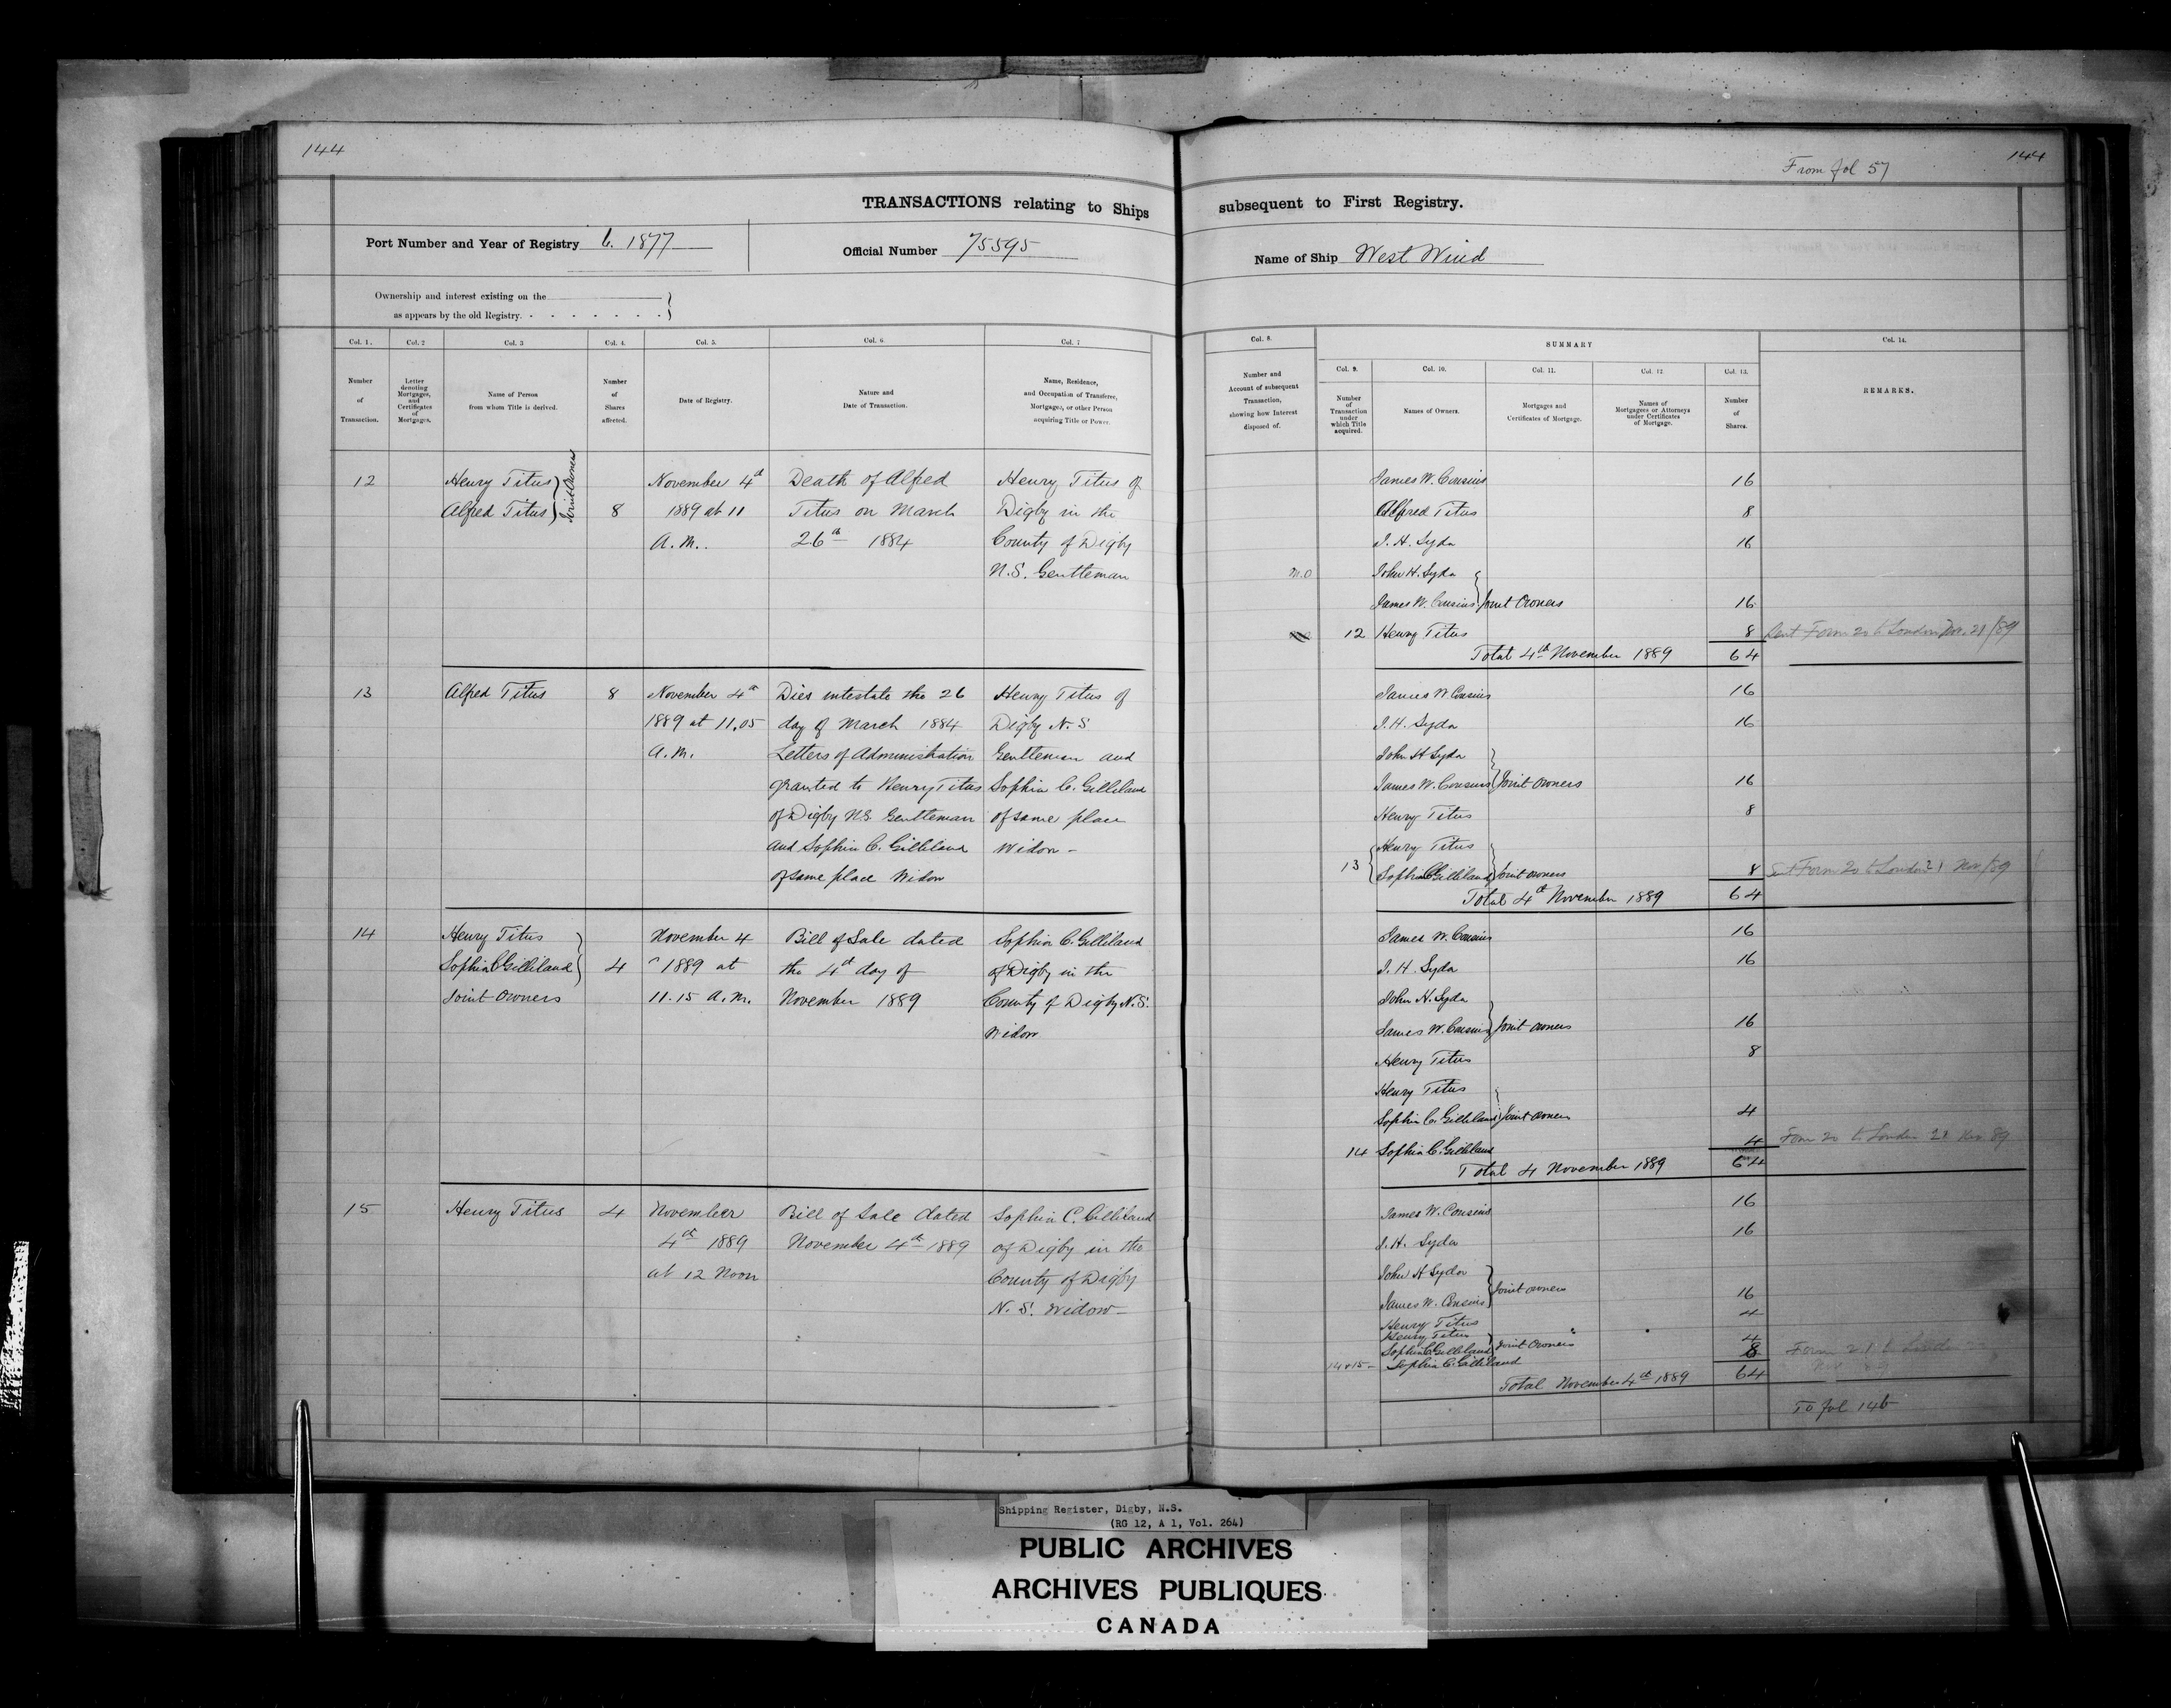 144
144
From fol 57
TRANSACTIONS relating to Ships subsequent to First Registry.
Port Number and Year of Registry 6. 1877
Official Number 75595
Name of Ship West Wind
Ownership and interest existing on the
as appears by the old Registry.
Col. 1.
Number
of
Transaction.
Col. 2
Letter
denoting
Mortgages,
and
Certificates
of
Mortgages.
Col. 3
Name of Person
from whom Title is derived.
Col. 4.
Number
of
Shares
affected.
Col. 5.
Date of Registry.
Col. 6
Nature and
Date of Transaction.
Col. 7
Name, Residence,
and Occupation of Transferee,
Mortgagee, or other Person
acquiring Title or Power.
Col. 8.
Number and
Account of subsequent
Transaction,
showing how Interest
disposed of.
SUMMARY
Col. 9.
Number
of
Transaction
under
which Title
acquired.
Col. 10.
Names of Owners.
Col. 11.
Mortgages and
Certificates of Mortgage.
Col. 12
Names of
Mortgagees or Attorneys
under Certificates
of Mortgage.
Col. 13.
Number
of
Shares.
Col. 14.
REMARKS.
12
Henry Titus
Alfred Titus
Joint Owners
8
November 4th
1889 at 11
A.M..
Death of Alfred
Titus on March
26th 1884
Henry Titus of
Digby in the
County of Digby
N.S. Gentleman
James W. Cousins 16
Alfred Titus 8
J. H. Syda 16
M.O John H. Syda
James W. Cousins Joint Owners 16
12 Henry Titus 8 Sent Form 20 to London Nov. 21/89
Total 4th November 1889 64
13
Alfred Titus
8
November 4th
1889 at 11.05
A.M.
Dies intestate the 26
day of March 1884
Letters of Administration
granted to Henry Titus
of Digby N.S. Gentleman
and Sophia C. Gilliland
of same place Widow
Henry Titus of
Digby N.S
Gentleman and
Sophia C. Gilliland
of same place
Widow -
James W Cousins 16
J. H. Syda 16
John H Syda
James W. Cousins Joint Owners 16
Henry Titus 8
Henry Titus
13 Sophia C Gilliland Joint owners 8 Sent Form 20 to London 21 Nov/89
Total 4th November 1889 64
14
Henry Titus
Sophia C Gilliland
Joint Owners
4
November 4
1889 at
11.15 A.M.
Bill of Sale dated
the 4th day of
November 1889
Sophia C. Gilliland
of Digby in the
County of Digby N.S.
Widow
James W. Cousins 16
J. H. Syda 16
John H. Syda
James W. Cousins Joint owners 16
Henry Titus 8
Henry Titus
Sophia C. Gilliland Joint Owners 4
14 Sophia C. Gilliland 4 Form 20 to London 21 Nov 89
Total 4 November 1889 64
15
Henry Titus
4
November
4th 1889
at 12 Noon
Bill of Sale dated
November 4th 1889
Sophia C. Gilliland
of Digby in the
County of Digby
N.S. Widow -
James W. Cousins 16
J. H. Syda 16
John H Syda
James W. Cousins Joint owners 16
Henry Titus 4
Henry Titus
Sophia C Gilliland Joint Owners 4
14 & 15 - Sophia C. Gilliland 8
Total November 4th 1889 64
To fol 146
Shipping Register, Digby, N.S.
(RG 12, A 1, Vol. 264)
PUBLIC ARCHIVES
ARCHIVES PUBLIQUES
CANADA